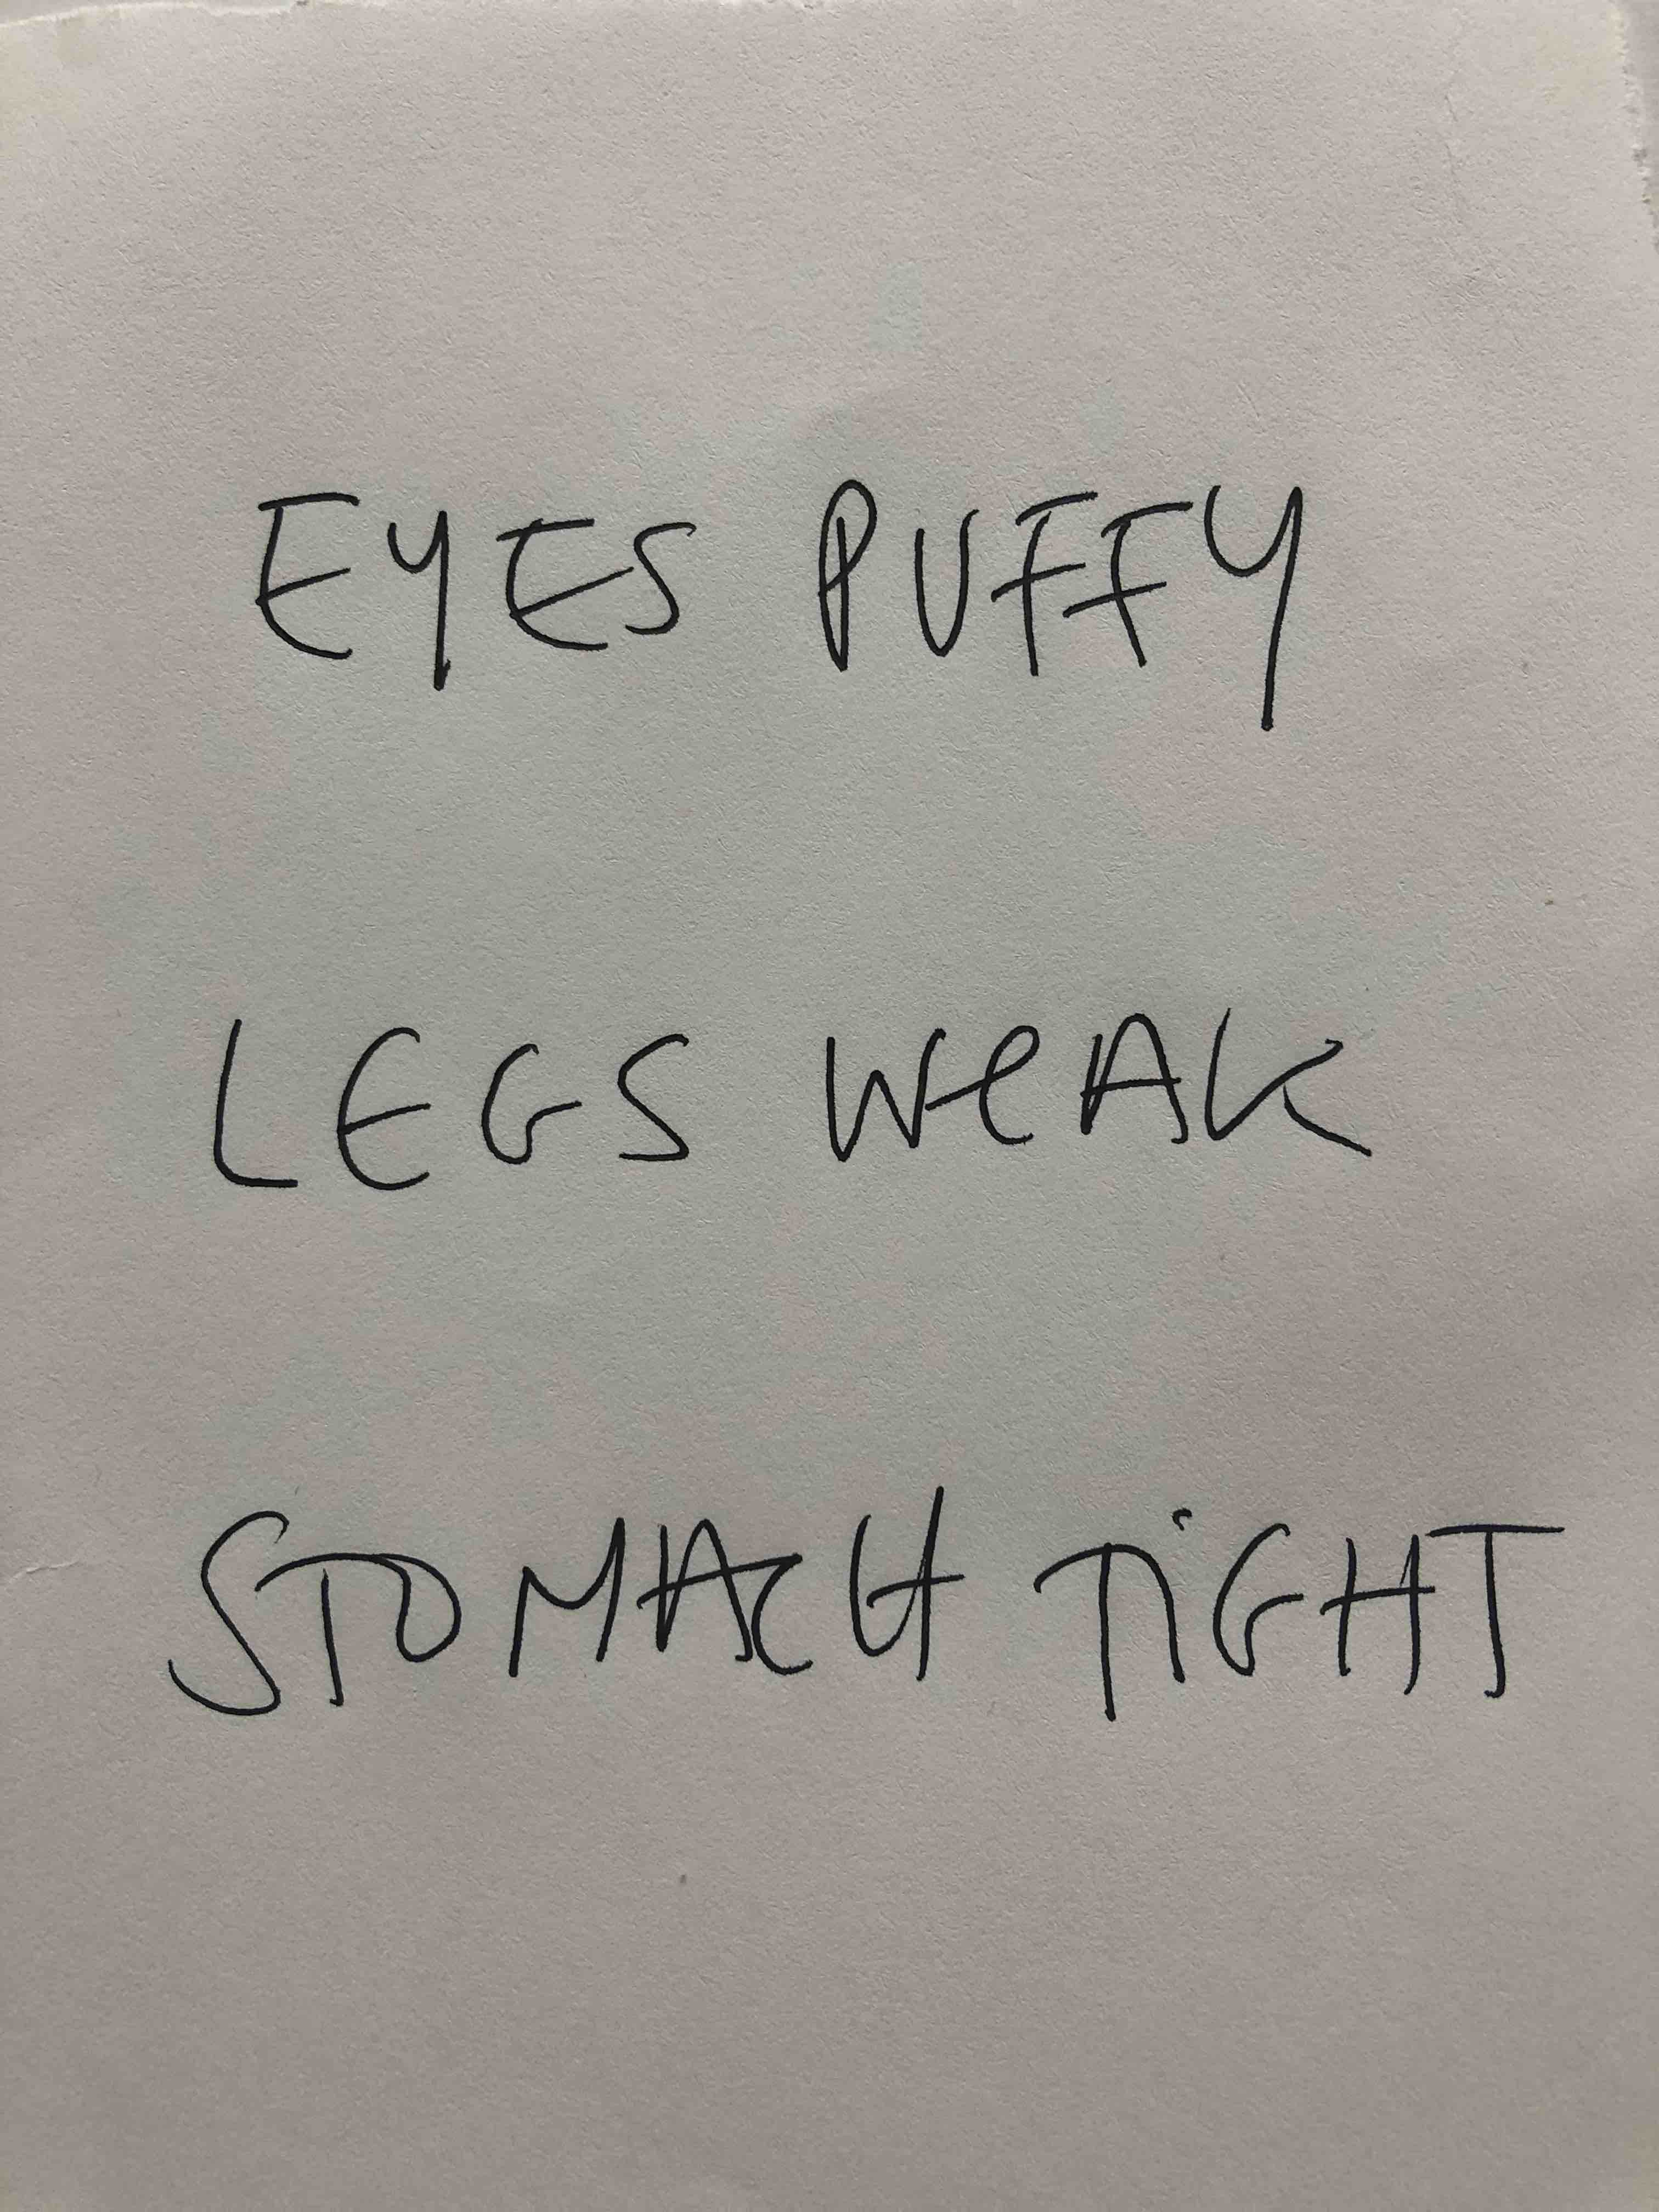 EYES PUFFY
LEGS WeAK
STOMACH TiGHT